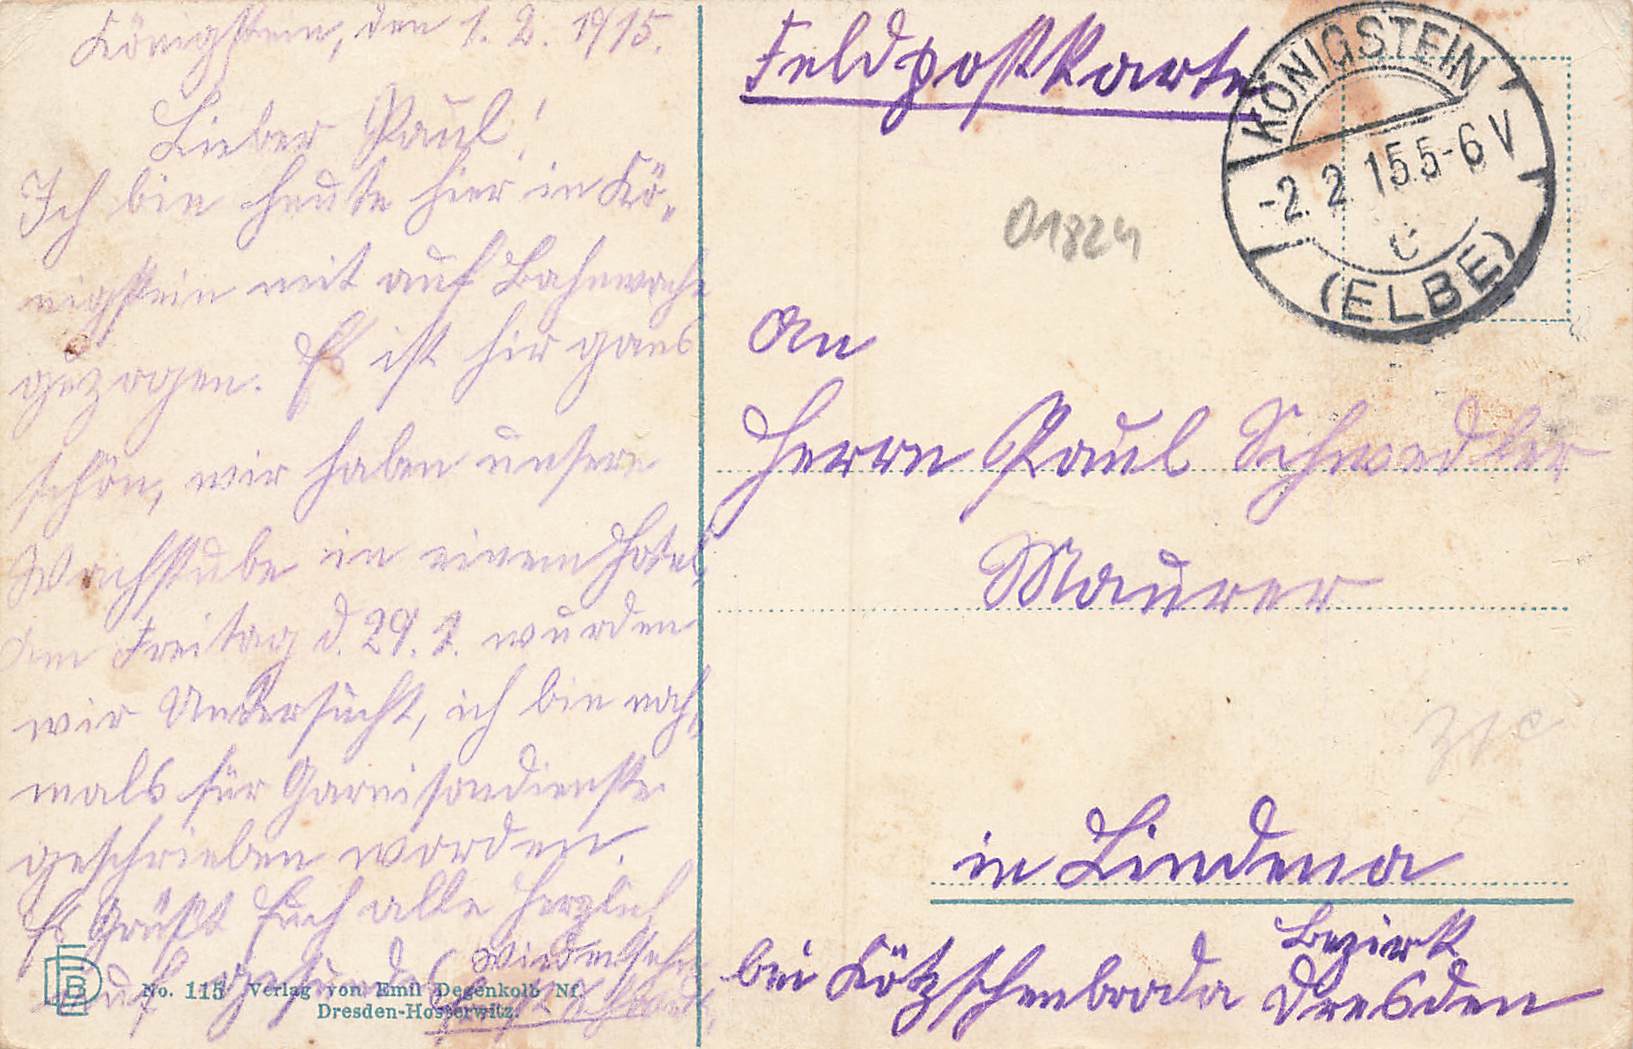 Königstein, den 1. 2. 1915.
Lieber Paul!
Ich bin heute hier in Kö-
nigstein mit auf Bahnwache
gezogen. Es ist hir gans
schön, wir haben unsere
Wachstube in einem Hotel,
Am Freitag d. 29. 1. wurden
wir Untersucht, ich bin noch-
mals für Garnisondienste
geschrieben worden.
Es Grüßt Euch alle herzlich
auf gesundes Wiedersehn
No. 115 Verlag von Emil Degenkolb Nf.
Dresden-Hosterwitz.
Feldpostkarte
KÖNIGSTEIN
-2. 2 15. 5-6 V
c
(ELBE)
01824
An
Herrn Paul Schwedler
Maurer
in Lindenau
bei Kötzschenbroda Bezirk
Dresden